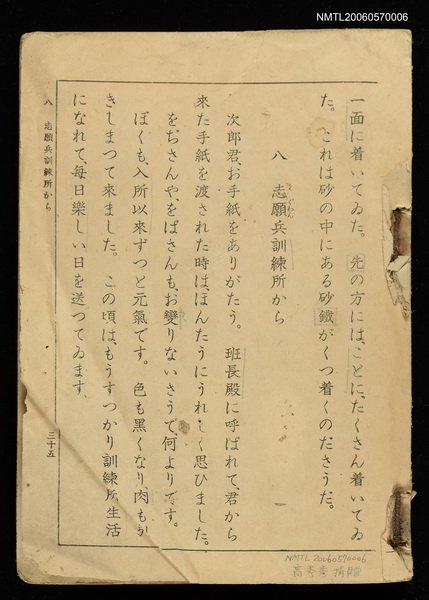 NMTL20060570006
一面に着いてゐた。先の方には、ことに、たくさん着いてゐ
た。これは砂の中にある砂鐵がくつ着くのださうだ。
八 志願兵訓練所から
次郎君、お手紙をありがたう。班長殿に呼ばれて、君から
來た手紙を渡された時は、ほんたうにうれしく思ひました。
をぢさんや、をばさんも、お變りないさうで、何よりです。
ぼくも、入所以來ずつと元氣です。色も黑くなり、肉もか
きしまつて來ました。この頃は、もうすつかり訓練所生活
になれて、每日樂しい日を送つてゐます。
八 志願兵訓練所から
三十五
NMTL20060570006